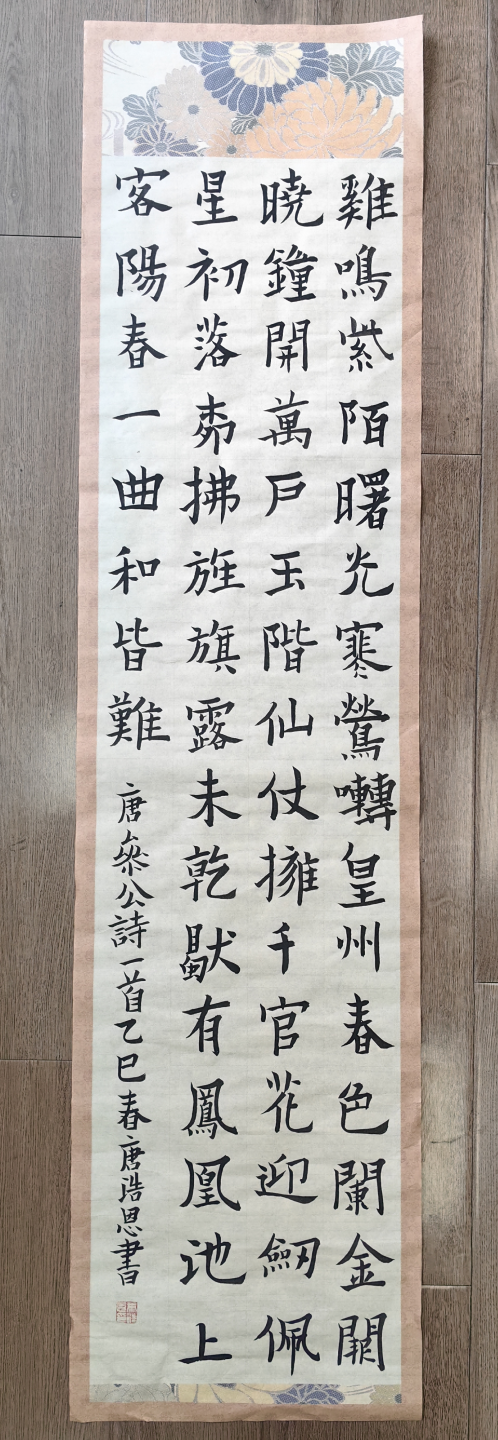 雞鳴紫陌曙光寒鶯囀皇州春色闌金闕
曉鐘開萬戶玉階仙仗擁千官花迎劒佩
星初落桺拂旌旗露未乾獨有鳳凰池上
客陽春一曲和皆難
唐叅公詩一首乙巳春唐浩恩書